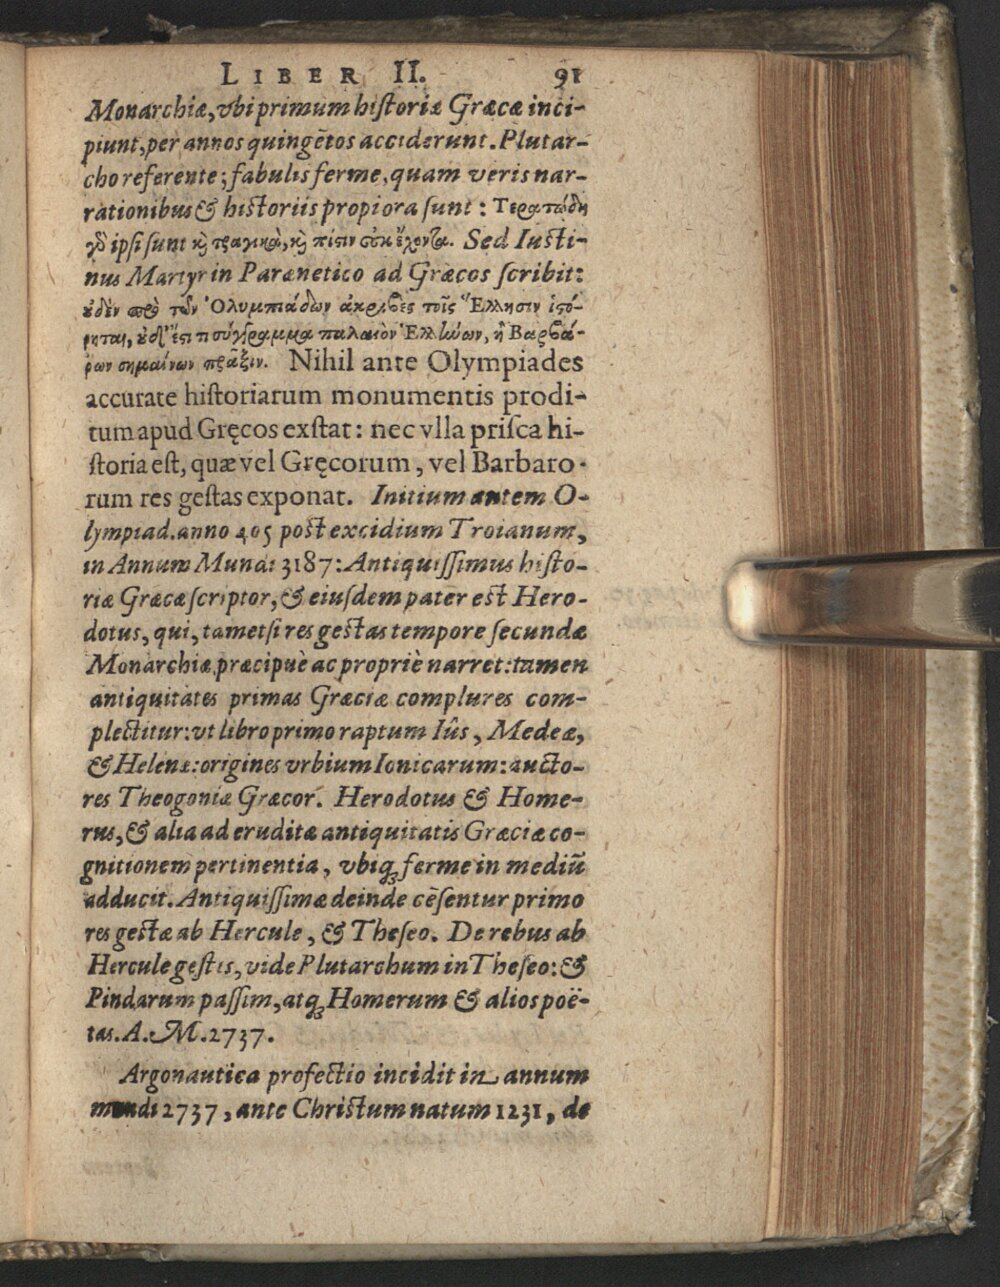 LIBER II. 91
Monarchiæ, vbi primum historiæ Græcæ inci-
piunt, per annos quingētos acciderunt. Plutar-
cho referente; fabulis ferme, quam veris nar-
rationibus & historiis propiora sunt: Τερατώδη
γὰρ ipsi sunt καὶ τραγικὰ, καὶ πίστιν οὐκ ἔχοντα. Sed Iusti-
nus Martyr in Parænetico ad Græcos scribit:
οὐδὲν πρὸ τῶν Ὀλυμπιάδων ἀκριβὲς τοῖς Ἕλλησιν ἱστό-
ρηται, οὐδ' ἔστι τι σύγγραμμα παλαιὸν Ἑλλήνων, ἢ Βαρβά-
ρων σημαίνων πρᾶξιν. Nihil ante Olympiades
accurate historiarum monumentis prodi-
tum apud Gręcos exstat: nec vlla prisca hi-
storia est, quæ vel Gręcorum, vel Barbaro-
rum res gestas exponat. Initium autem O-
lympiad. anno 405 post excidium Troianum,
in Annum Mundi 3187: Antiquissimus histo-
riæ Græcæ scriptor, & eiusdem pater est Hero-
dotus, qui, tametsi res gestas tempore secundæ
Monarchiæ præcipuè ac propriè narret: tamen
antiquitates primas Græciæ complures com-
plectitur: vt libro primo raptum Iûs, Medeæ,
& Helenæ: origines vrbium Ionicarum: aucto-
res Theogoniæ Græcor. Herodotus & Home-
rus, & alia ad eruditæ antiquitatis Græciæ co-
gnitionem pertinentia, vbiq; ferme in mediū
adducit. Antiquissimæ deinde cēsentur primo
res gestæ ab Hercule, & Theseo. De rebus ab
Hercule gestis, vide Plutarchum in Theseo: &
Pindarum passim, atq; Homerum & alios poë-
tas. A. M. 2737.
Argonautica profectio incidit in annum
mundi 2737, ante Christum natum 1231, de